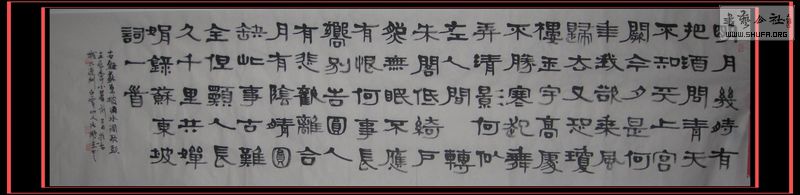 明月幾時有
把酒問青天
不知天上宮
闕今夕是何
年我欲乘風
歸去又恐瓊
樓玉宇高處
不勝寒起舞
弄清影何似
在人間轉
朱閣低綺戶
照無眠不應
有恨何事長
嚮別旹圓人
有悲歡離合
月有陰晴圓
缺此事古難
全但願人長
久千里共嬋
娟錄蘇東坡
詞一首
書藝公社
WWW.SHUFA.ORG